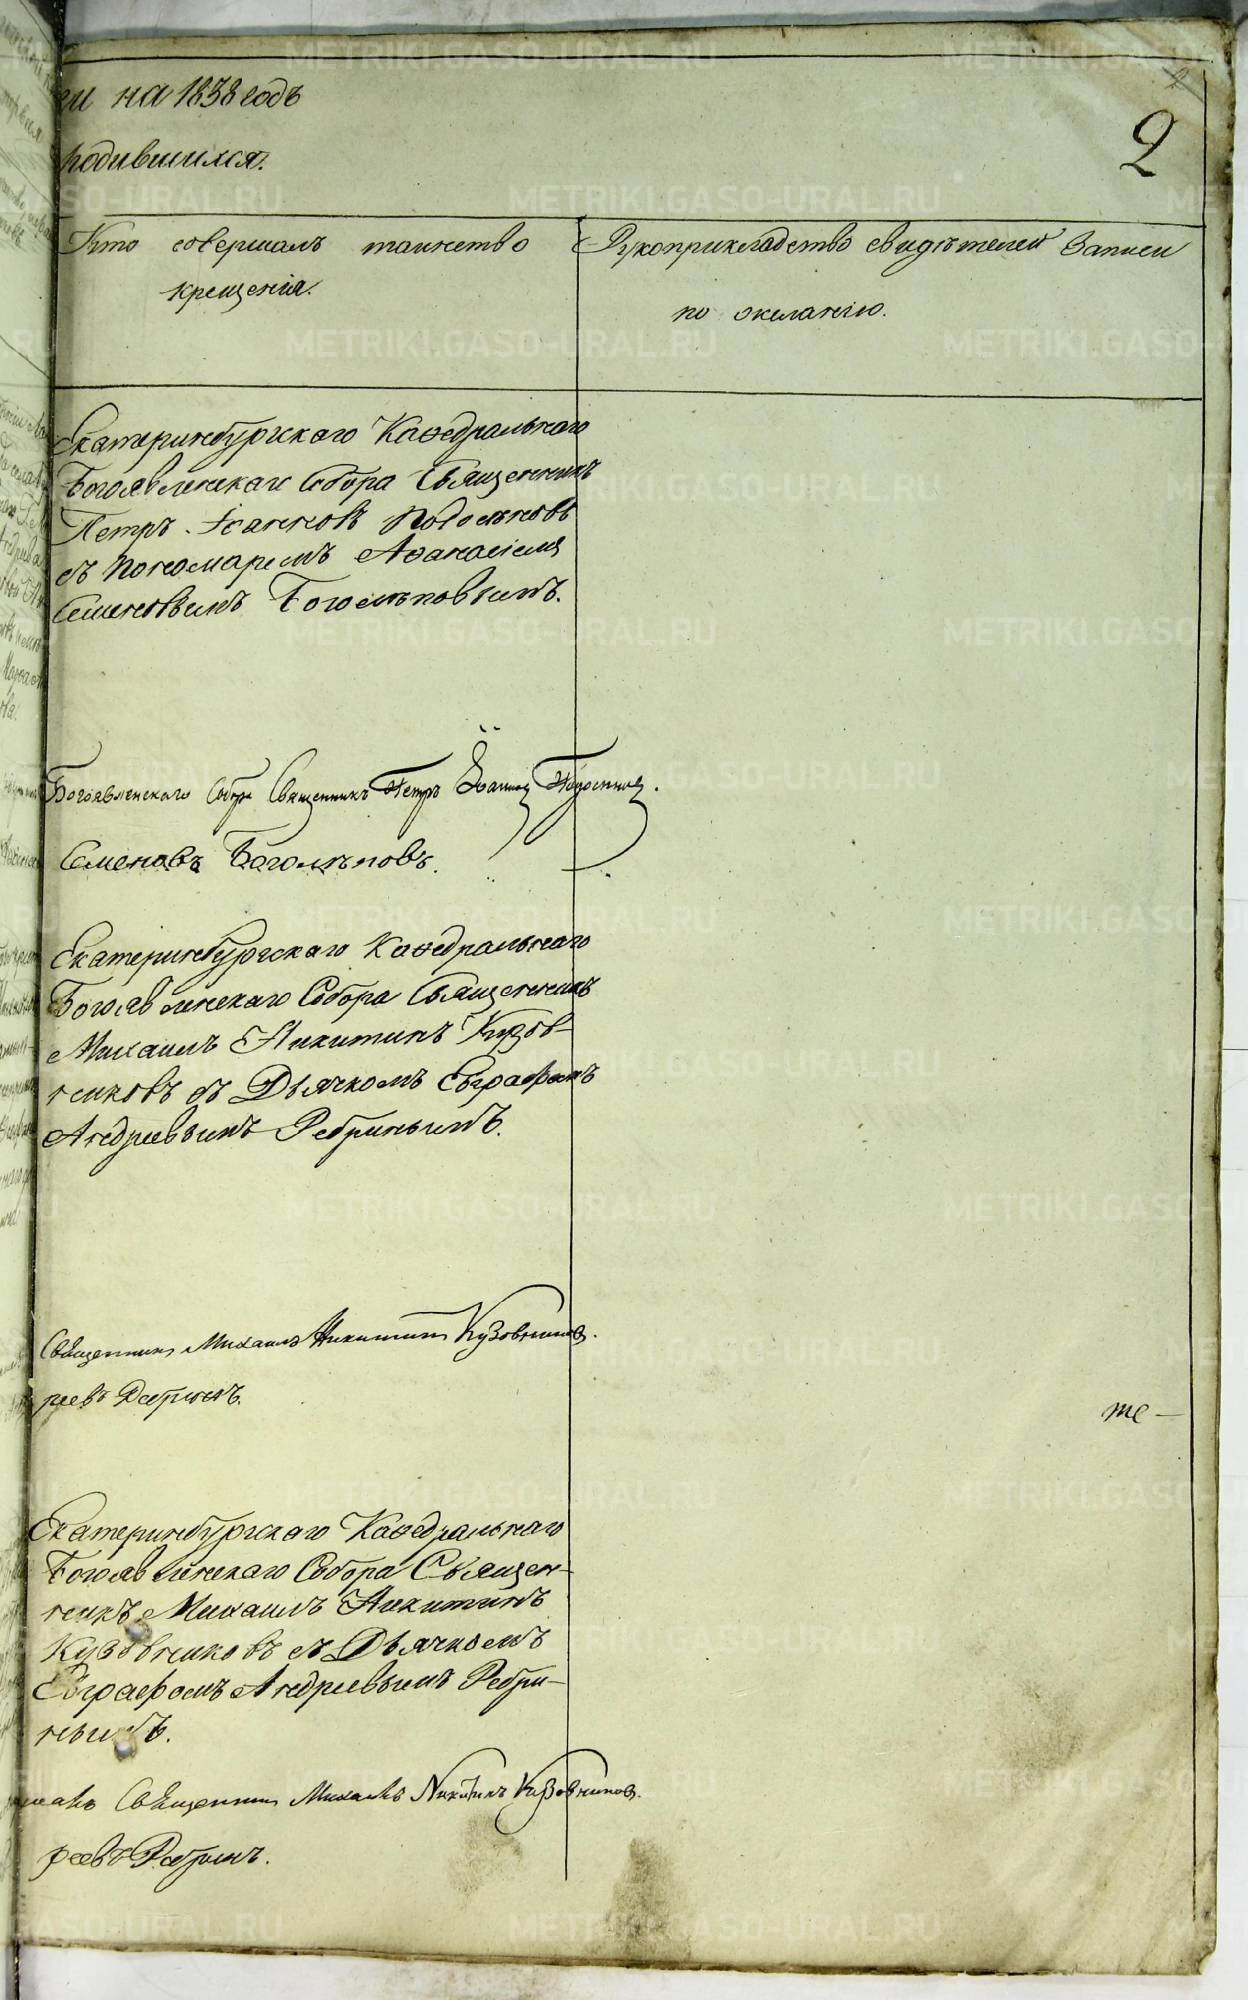 ги на 1838 годъ
2
родившихся.
Кто совершалъ таинство
крещенія.
Рукоприкладство свидѣтелей записи
по желанію.
Екатеринбургскаго Каѳедральнаго
Богоявленскаго Собора Священникъ
Петръ Іоанновъ
съ пономаремъ Аѳанасіемъ
Семеновымъ Боголѣповымъ.
Богоявленскаго Собора Священникъ Петръ Іоанновъ
Семеновъ Боголѣповъ.
Екатеринбургскаго Каѳедральнаго
Богоявленскаго Собора Священникъ
Михаилъ Никитинъ Кузов-
никовъ съ Дьячкомъ Евграфомъ
Андреевымъ Ребринымъ.
Священникъ Михаилъ Никитинъ Кузовниковъ.
реевъ Ребринъ.
те-
Екатеринбургскаго Каѳедральнаго
Богоявленскаго Собора Священ-
никъ Михаилъ Никитинъ
Кузовниковъ съ Дьячкомъ
Евграфомъ Андреевымъ Ребри-
нымъ.
Священникъ Михаилъ Никитинъ Кузовниковъ.
реевъ Ребринъ.
METRIKI.GASO-URAL.RU